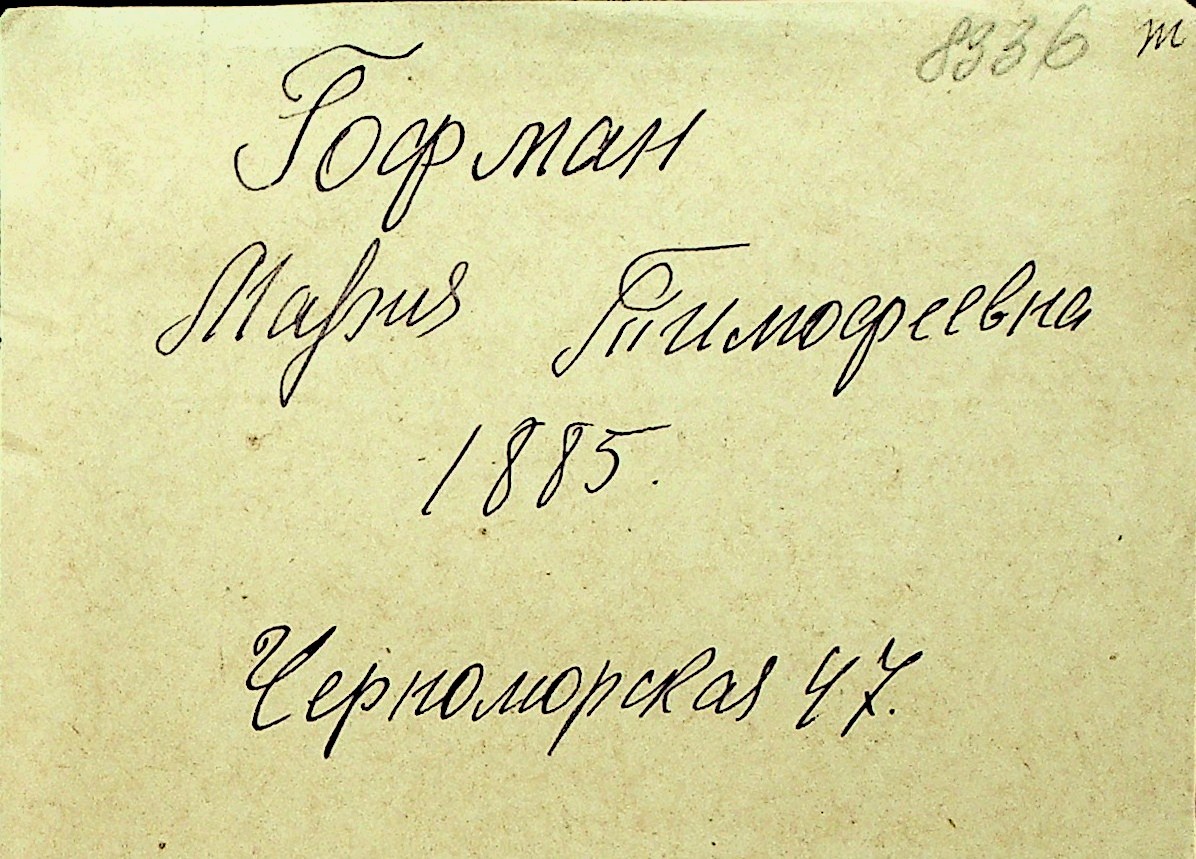 8336 т
Гофман
Мария Тимофеевна
1885.
Черноморская 47.